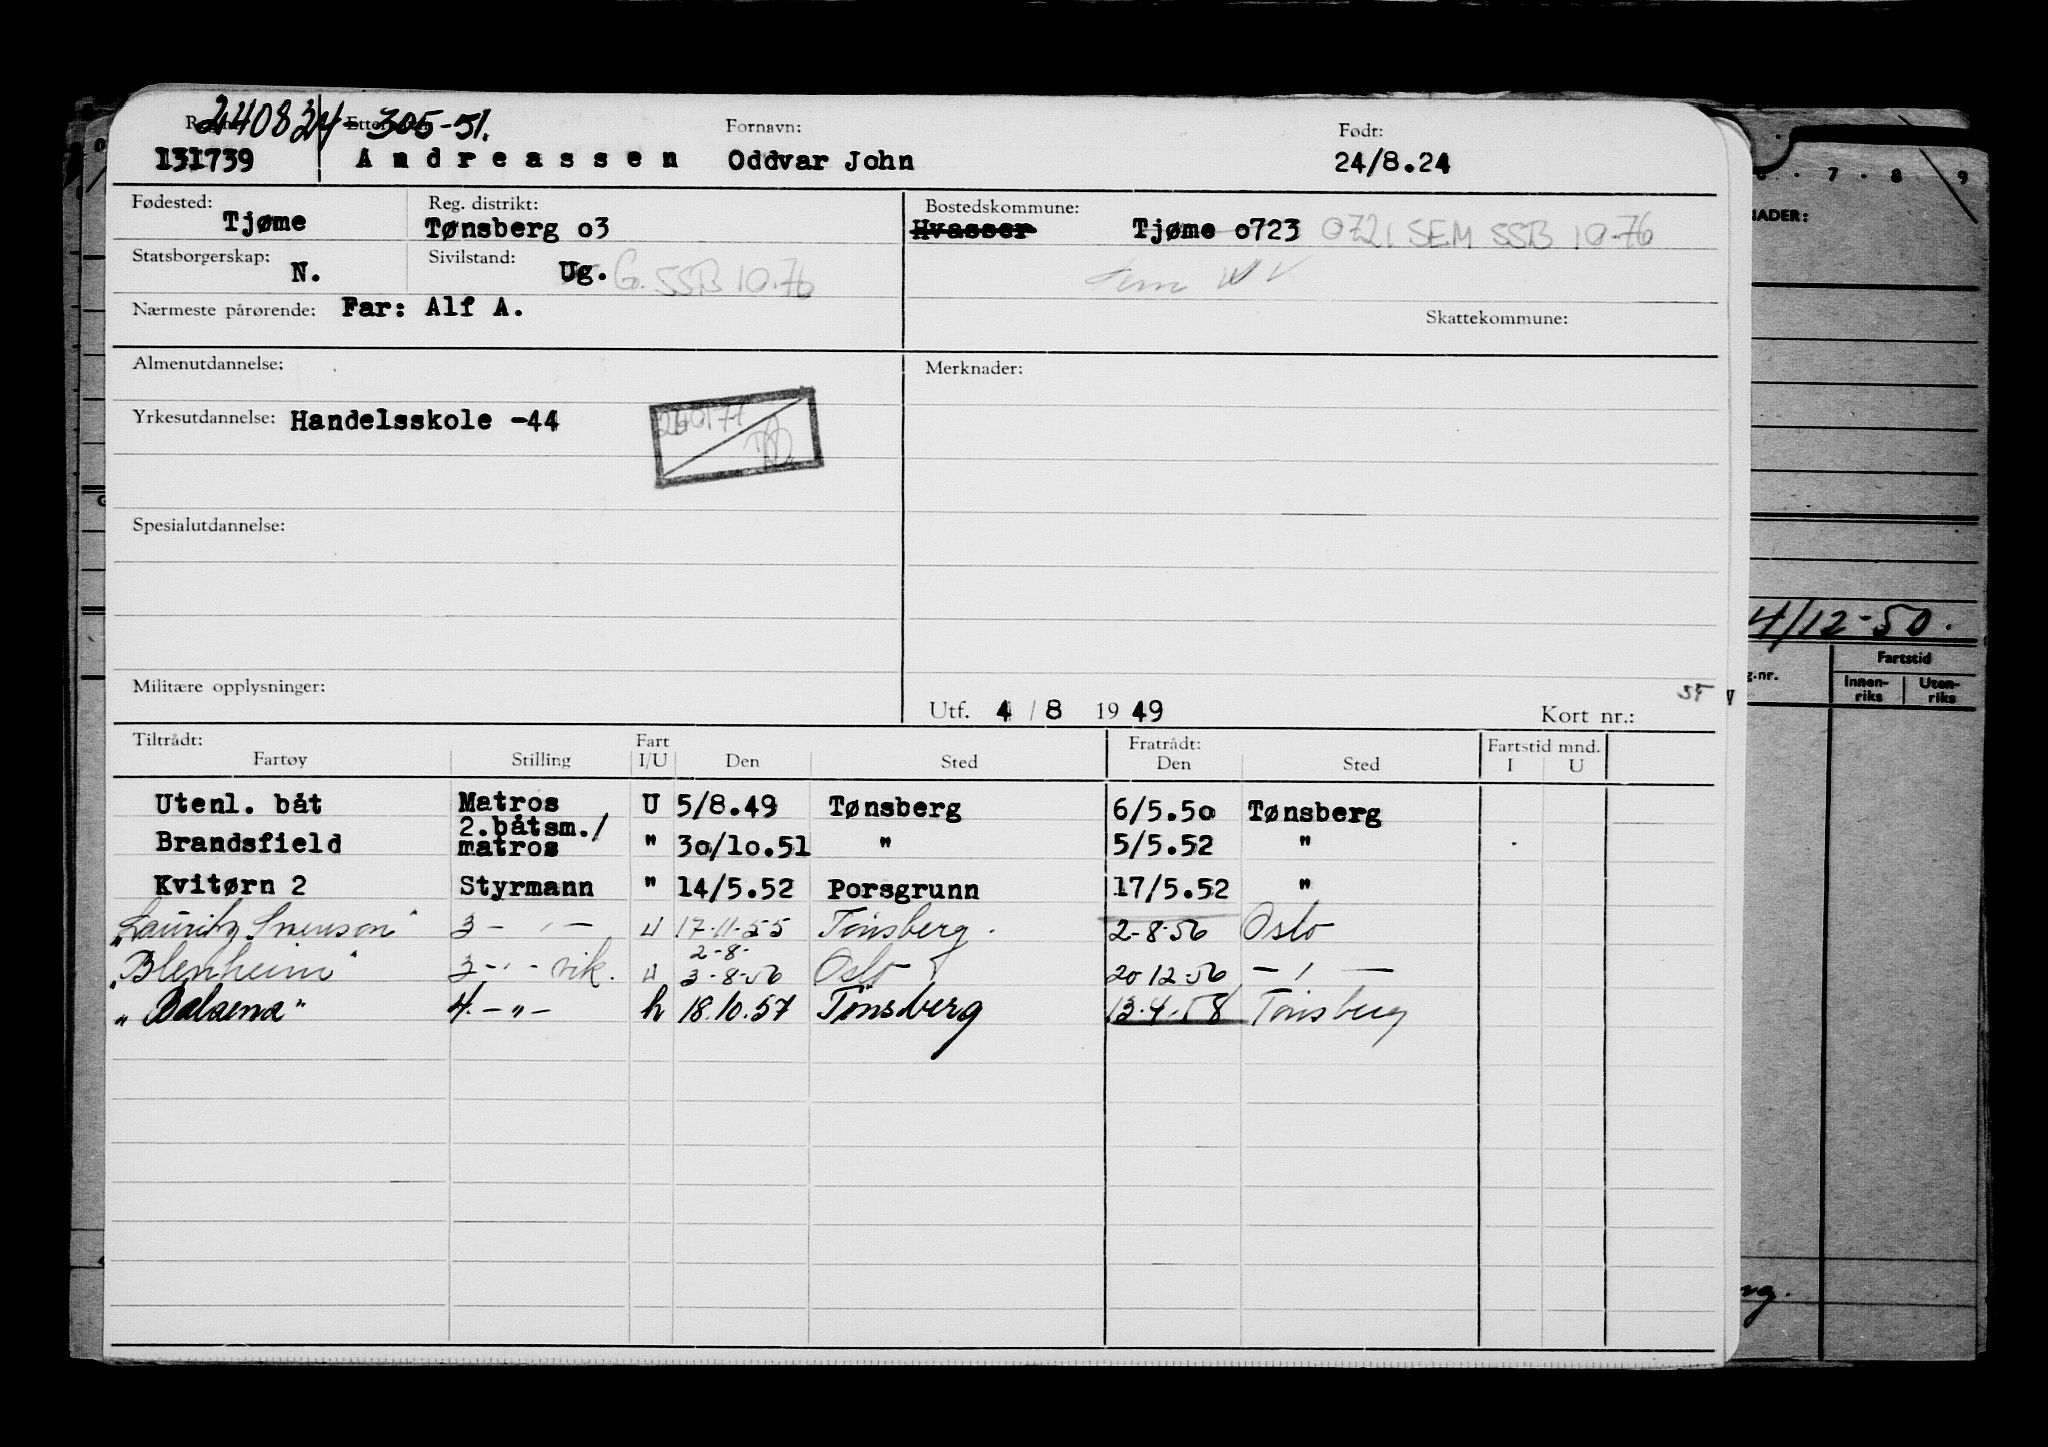 240824 305-51.
Reg.nr. Etternavn: Fornavn: Født:
131739 Andreassen Oddvar John 24/8.24
Fødested: Reg. distrikt: Bostedskommune:
Tjøme Tønsberg o3 Hvasser Tjøme o723 0721 SEM SSB 10-76
Statsborgerskap: Sivilstand:
N. Ug. G. SSB 10.76 Sem
Nærmeste pårørende: Far: Alf A.
Skattekommune:
Almenutdannelse: Merknader:
Yrkesutdannelse: Handelsskole -44
Spesialutdannelse:
Militære opplysninger:
Utf. 4/8 1949 Kort nr.:
Tiltrådt: Fart Fratrådt: Fartstid mnd.
Fartøy Stilling I/U Den Sted Den Sted I U
Utenl. båt Matros U 5/8.49 Tønsberg 6/5.5o Tønsberg
Brandsfield 2.båtsm./matros " 3o/1o.51 " 5/5.52 "
Kvitørn 2 Styrmann " 14/5.52 Porsgrunn 17/5.52 "
"Lauritz Svenson" 3 - " - " 17-11-55 Tønsberg. 2-8-56 Oslo
2-8-
"Blenheim" 3 - " - vik. " 3-8-56 Oslo 20 12-56 - " -
"Balaena" 4. - " - h 18.10.57 Tønsberg 13-4-58 Tønsberg
7 . 8 . 9
NADER:
4/12-50.
g.nr. Fartstid
Innen-riks Uten-riks